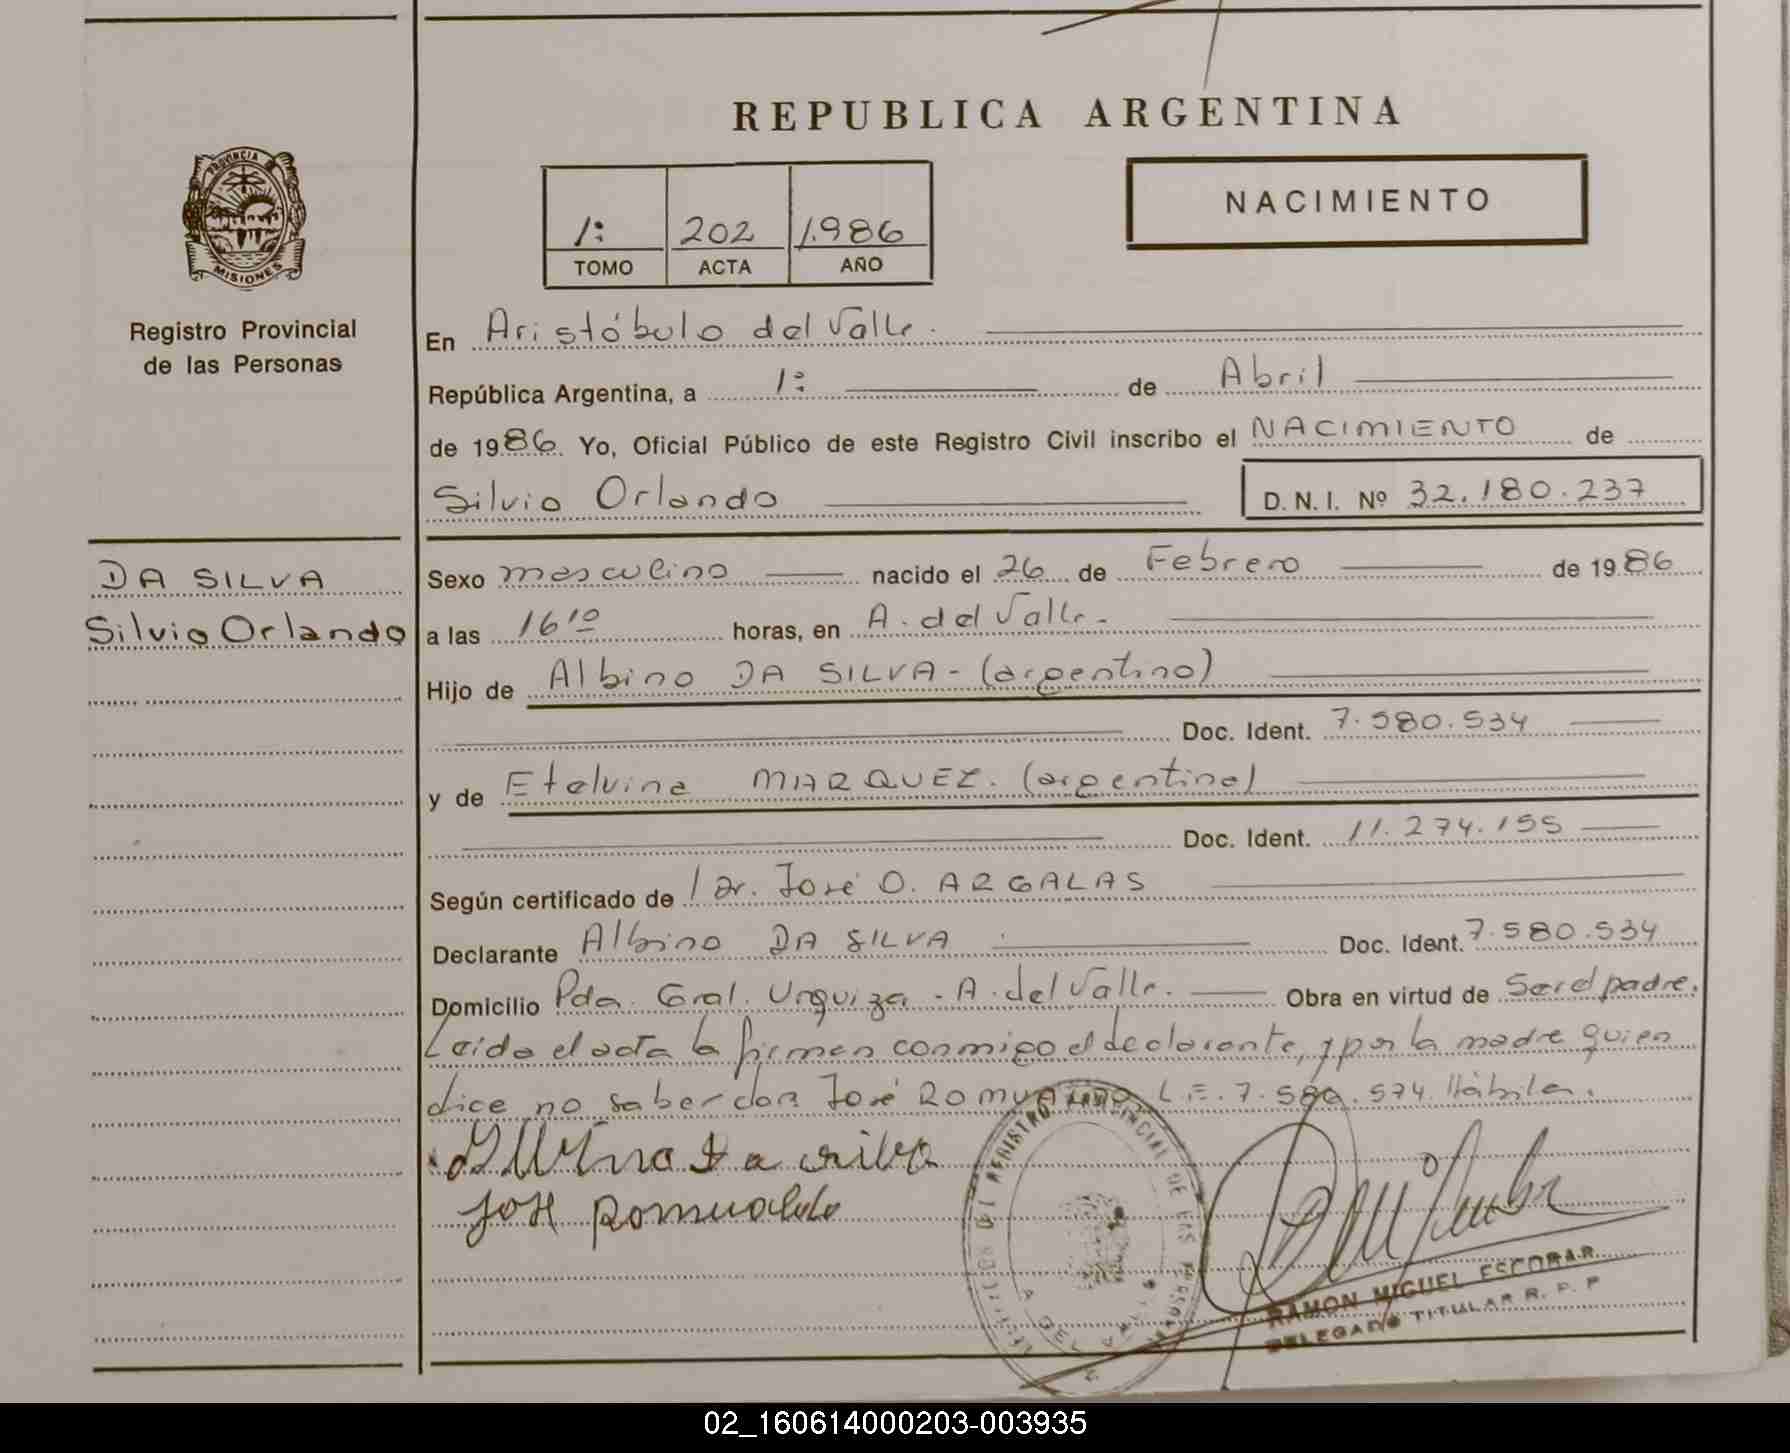 REPUBLICA ARGENTINA
PROVINCIA
MISIONES
Registro Provincial
de las Personas
1: 202 1.986
TOMO ACTA AÑO
NACIMIENTO
En Aristóbulo del Valle.
República Argentina, a 1: de Abril
de 1986. Yo, Oficial Público de este Registro Civil inscribo el NACIMIENTO de
Silvio Orlando D. N. I. Nº 32.180.237
DA SILVA
Silvio Orlando
Sexo masculino nacido el 26 de Febrero de 1986
a las 16 10 horas, en A. del Valle.
Hijo de Albino DA SILVA - (argentino)
Doc. Ident. 7.580.534
y de Etelvina MARQUEZ. (argentina)
Doc. Ident. 11.274.155
Según certificado de Dr. José O. ARGALAS
Declarante Albino DA SILVA Doc. Ident. 7.580.534
Domicilio Pda. Gral. Urquiza - A. del Valle. Obra en virtud de Ser el padre.
Leida el acta la firman conmigo el declarante, y por la madre quien
dice no saber don José ROMUALDO, L.E. 7.580.574. Hábiles.
Albino Da silva
José Romualdo
RAMON MIGUEL ESCOBAR
DELEGADO TITULAR R. P. P
02_160614000203-003935